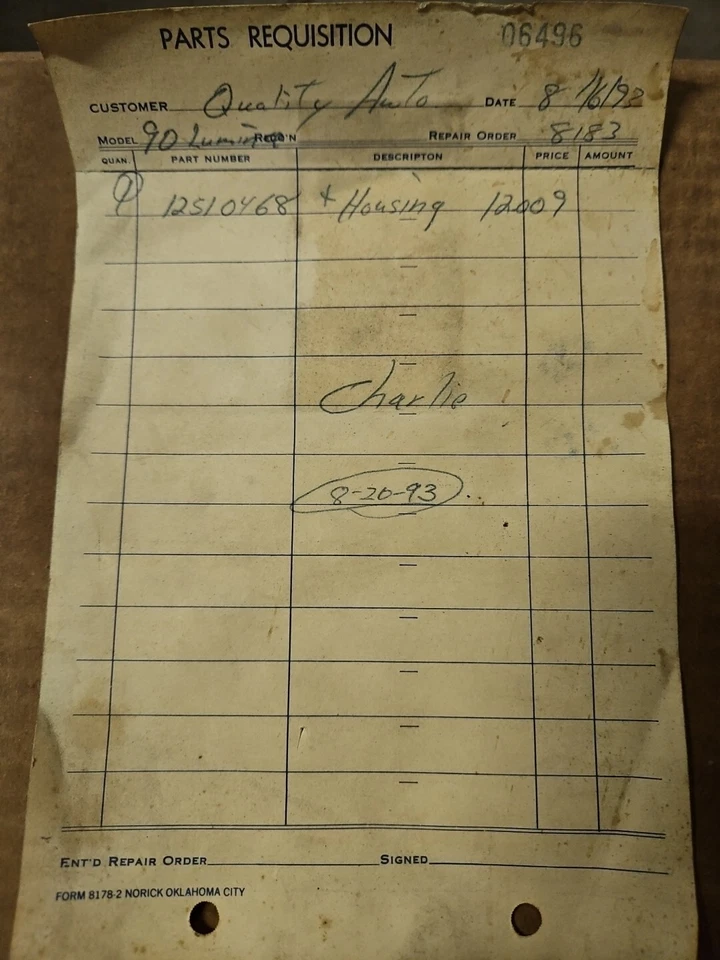 PARTS REQUISITION 06496
CUSTOMER Quality Auto DATE 8/16/93
MODEL 90 Lumina REQ'N REPAIR ORDER 8183
QUAN. PART NUMBER DESCRIPTON PRICE AMOUNT
12510468 + Housing 12009
Charlie
8-20-93
ENT'D REPAIR ORDER SIGNED
FORM 8178-2 NORICK OKLAHOMA CITY